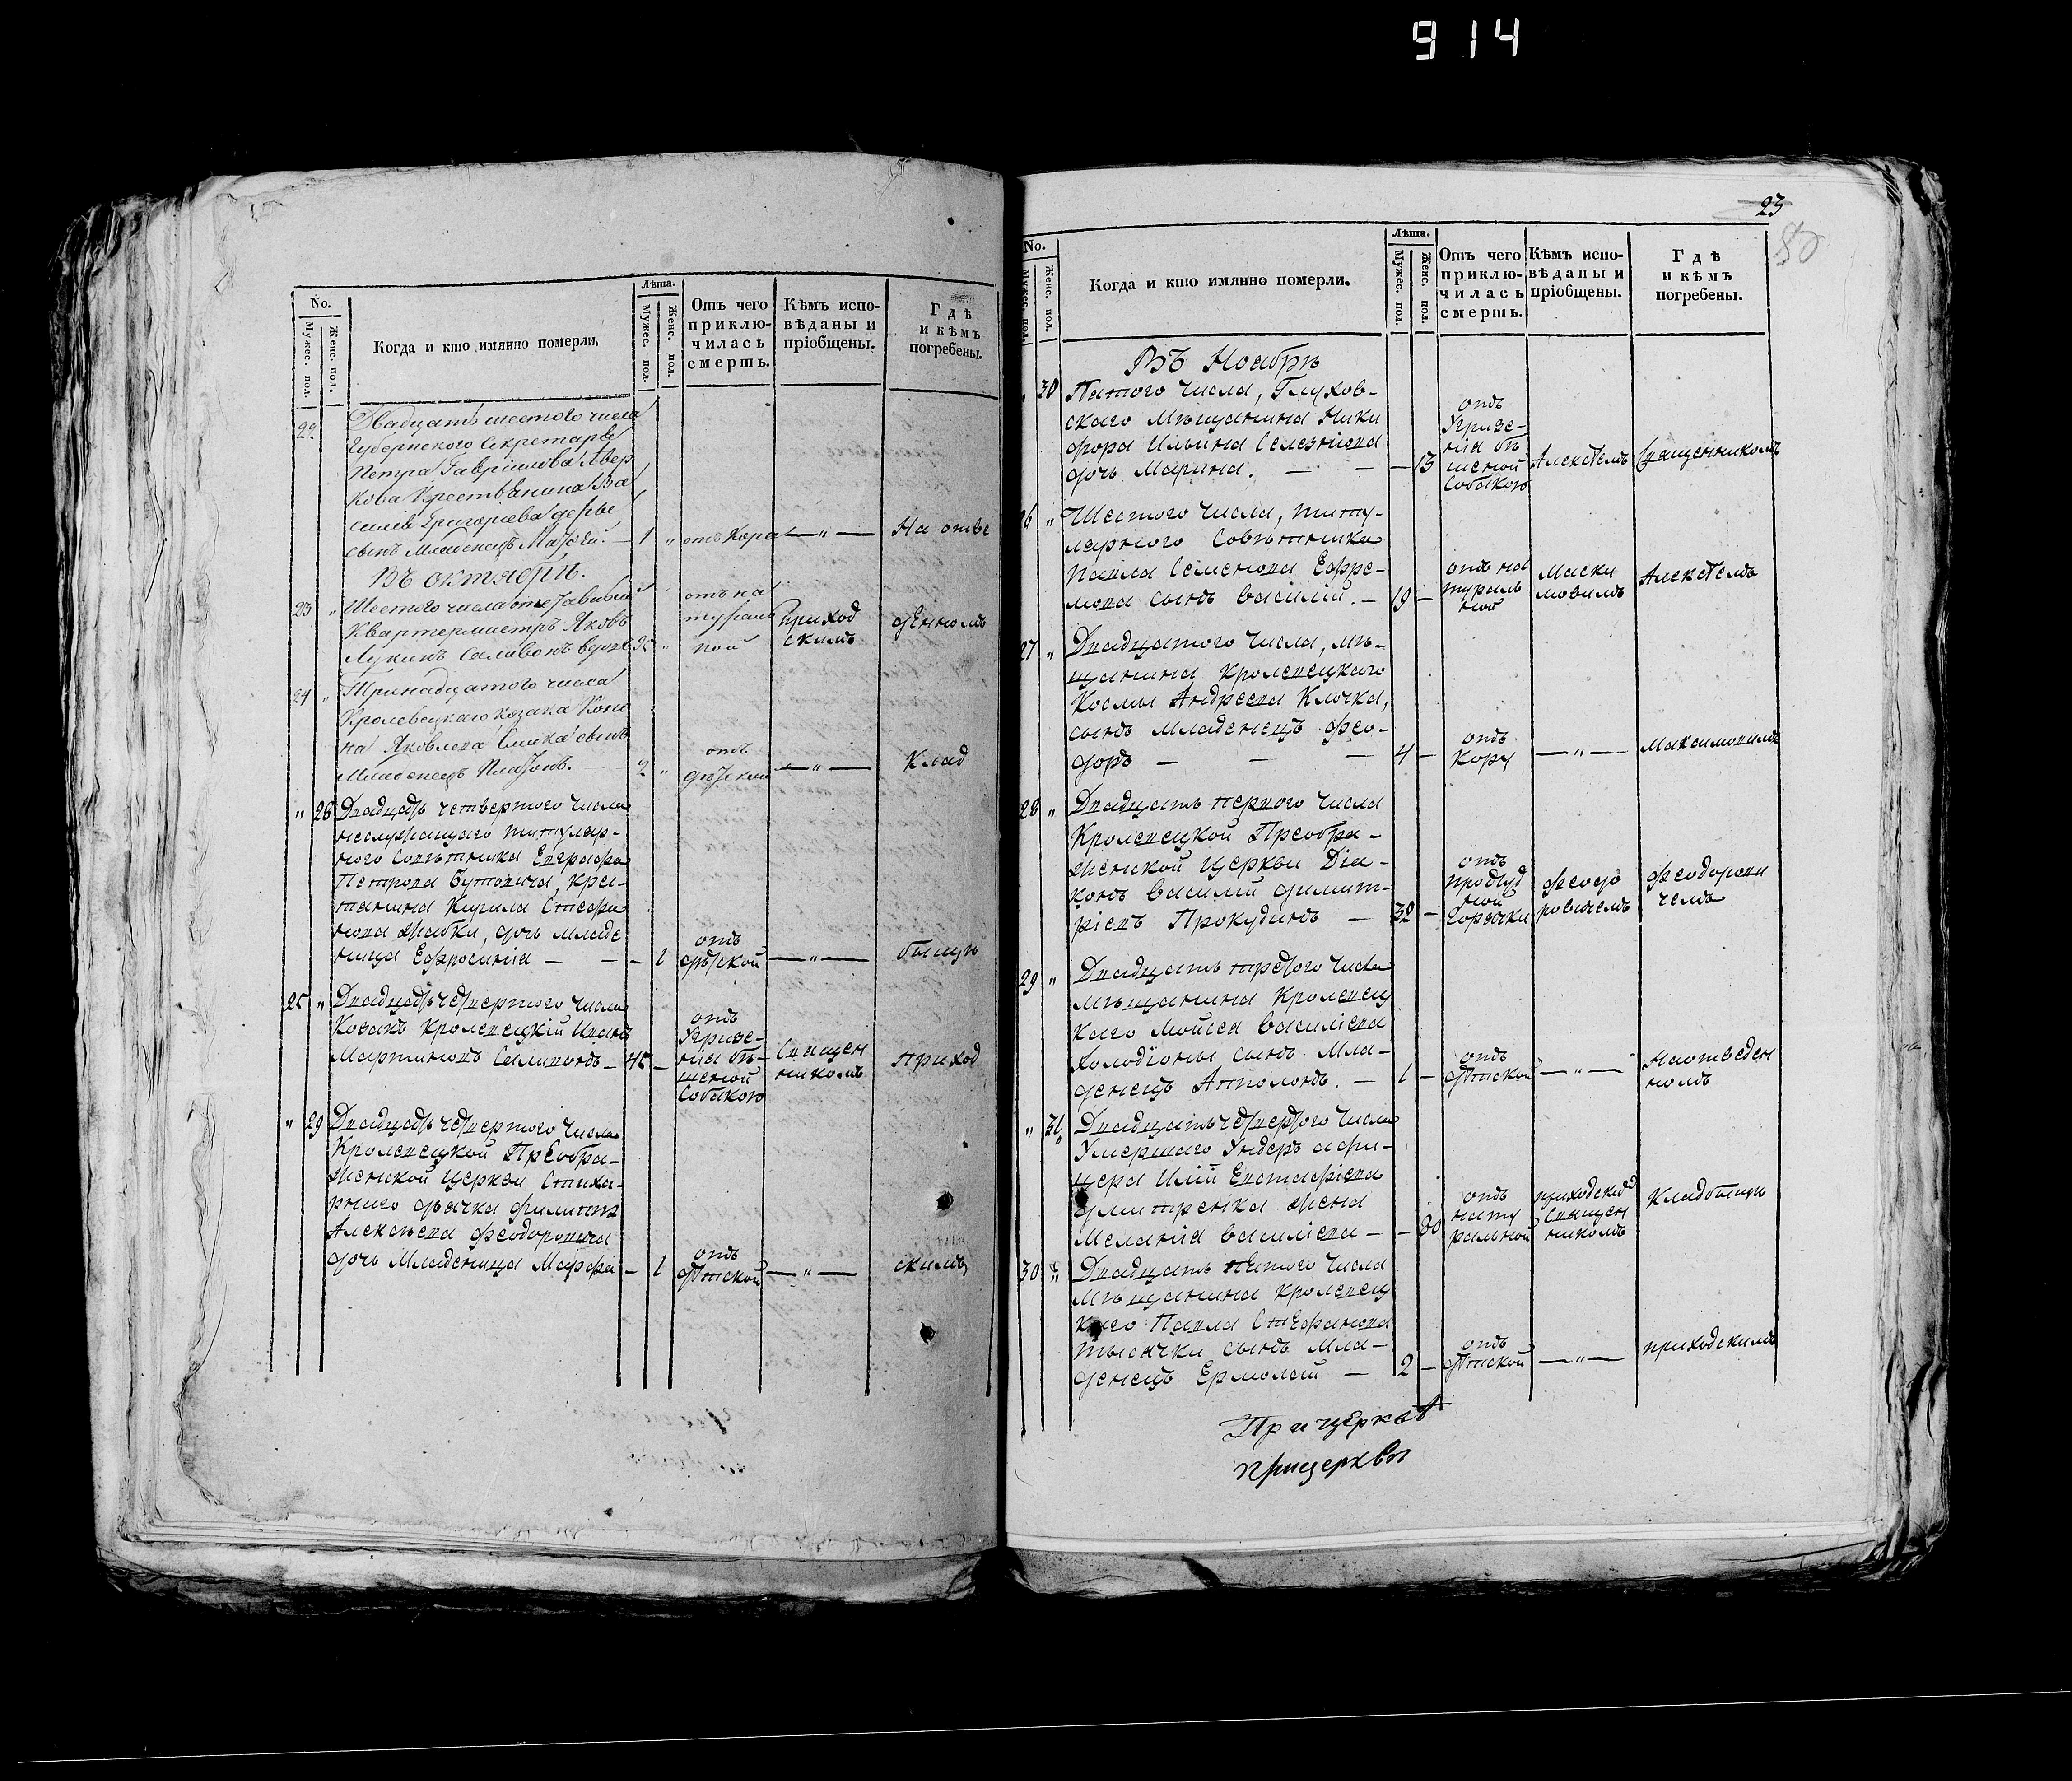 914
No.
Мужес. пол.
Женс. пол.
Когда и кто имянно померли.
Лѣта.
Мужес. пол.
Женс. пол.
Отъ чего
приклю-
чилась
смерть.
Кѣмъ испо-
вѣданы и
пріобщены.
Гдѣ
и кѣмъ
погребены.
22
Двадцать шестого числа
Губернского Секретаря
Петра Гавріилова Авер
кова Крестьянина Ва
силія Григорьева
сынъ младенецъ
1 „ отъ Кора — „ — На отве
Въ октябрѣ.
23 „ Шестого числа
Квартермистръ Яковъ
Лукинъ Саливонъ
отъ на
тураль
ной
Приход
скимъ
денномъ
24 „ Тринадцатого числа
Кролевецкаго козака Коно
на Яковлева сынъ
Младенецъ Платонъ.
2 „
отъ
дѣтской
— „ —
Клад
„ 28 Двадцать четвертого числа
неслужащаго титуляр-
ного Совѣтника Евграфа
Петрова Бутовича, крес-
тянина Кирила Стефа
нова Жабки, дочь младе
ница Ефросинія — — — 1
отъ
дѣтской
— „ —
бищѣ
25 „ Двадцать четвертого числа
Козакъ Кролевецкій Иванъ
Мартиновъ Саливонъ — 45 —
отъ
Угризе-
нія бѣ-
шеной
Собакою
Священ
никомъ
Приход
„ 29 Двадцать четвертого числа
Кролевецкой Преобра-
женской Церкви Стиха-
рного дьячка Филиппа
Алексѣева Феодоровича
дочь Младеница Марфа — 1
отъ
дѣтской
— „ —
скимъ
23
No.
Мужес. пол.
Женс. пол.
Когда и кто имянно померли.
Лѣта.
Мужес. пол.
Женс. пол.
Отъ чего
приклю-
чилась
смерть.
Кѣмъ испо-
вѣданы и
пріобщены.
Гдѣ
и кѣмъ
погребены.
Въ Ноябрѣ
30 Пятого числа, Глухов-
скаго Мѣщанина Ники
фора Ильина Селезніова
дочь Марина. — — — 13
отъ
Угризе-
нія бѣ
шеной
Собакою
Алексѣемъ
Священникомъ
26 „ Шестого числа, титу-
лярного Совѣтника
Павла Семенова Ефре-
мова сынъ Василій. — 19 —
отъ на
тураль
ной
Макси
мовимъ
Алексѣемъ
27 „ Двадцатого числа, мѣ-
щанина Кролевецкаго
Космы Андреева Клочка,
сынъ младенецъ Фео-
доръ — — — 4 —
отъ
Кору
— „ —
Максимовимъ
28 „ Двадцать первого числа
Кролевецкой Преобра-
женской Церкви Діа-
конъ Василій Димит-
ріевъ Прокудинъ — 32 —
отъ
простуд
ной
Горячки
Феодо
ровичемъ
Феодорови
чемъ
29 „ Двадцать третого числа
мѣщанина Кролевец
каго Мойсея Василіева
Холодіоны сынъ Мла-
денецъ Апполонъ. — 1 —
отъ
дѣтской
— „ —
На отведен
номъ
„ 31 Двадцать четвертого числа
Умершаго Ундеръ афи-
цера Иліи Евстафіева
Дмитренка жена
Меланія Василіева — — 30
отъ
нату
ральной
приходскимъ
Священ
никомъ
Кладбищѣ
30 „ Двадцать пятого числа
Мѣщанина Кролевец
каго Павла Стефанова
Тысячки сынъ Мла-
денецъ Ермолай — 2 —
отъ
дѣтской
— „ —
приходскимъ
При церквѣ
При церквы